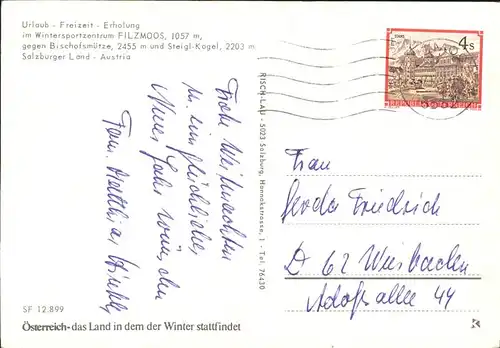 Urlaub - Freizeit - Erholung
im Wintersportzentrum FILZMOOS, 1057 m,
gegen Bischofsmütze, 2455 m und Steigl-Kogel, 2203 m
Salzburger Land - Austria
Frohe Weihnachten
u. ein glückliches
Neues Jahr wünschen
Fam. Matthias
SF 12.899
Österreich-das Land in dem der Winter stattfindet
RISCH-LAU - 5023 Salzburg, Hannakstrasse, 1 - Tel. 76430
4 S
Frau
Gerda Friedrich
D 62 Wiesbaden
Adolfsallee 44